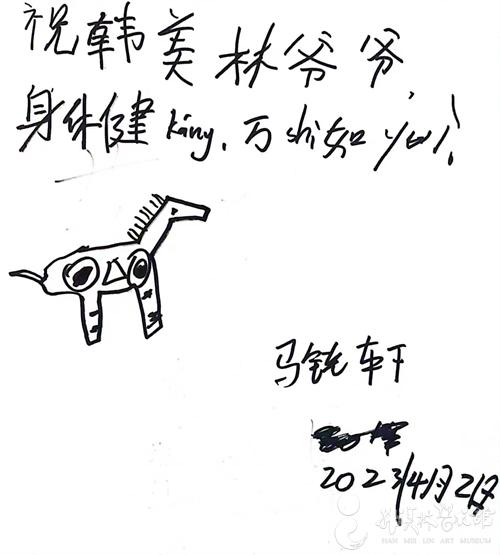 祝韩美林爷爷,
身体健kāng,万shì如yì!
马轩
2023/4月2日
韩美林艺术馆
HAN MEI LIN ART MUSEUM